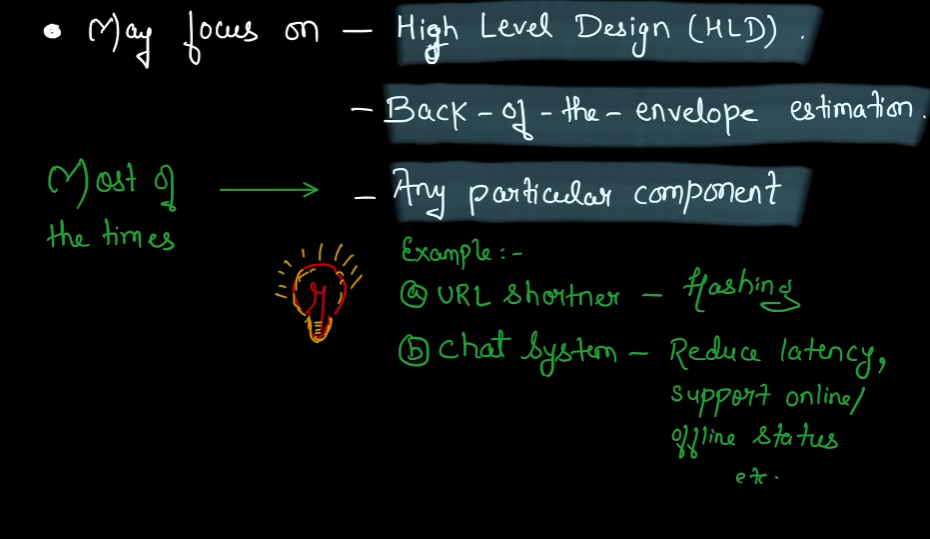 • May focus on – High Level Design (HLD).
– Back-of-the-envelope estimation.
Most of → – Any particular component
the times
Example:-
ⓐ URL Shortner – Hashing
ⓑ Chat System – Reduce latency,
support online/
offline status
etc.